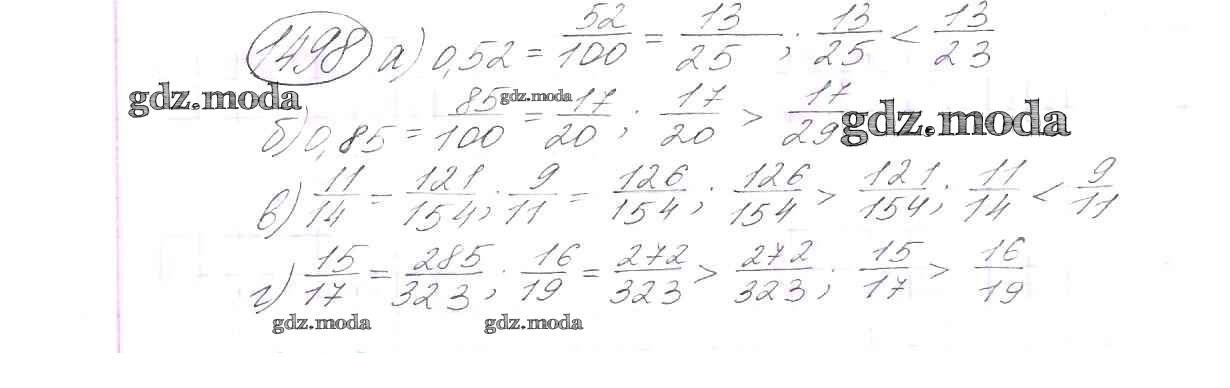 1498 а) 0,52 = 52/100 = 13/25; 13/25 < 13/23
gdz.moda
б) 0,85 = 85/100 = 17/20; 17/20 > 17/29
gdz.moda
gdz.moda
в) 11/14 = 121/154; 9/11 = 126/154; 126/154 > 121/154; 11/14 < 9/11
г) 15/17 = 285/323; 16/19 = 272/323 > 272/323; 15/17 > 16/19
gdz.moda gdz.moda